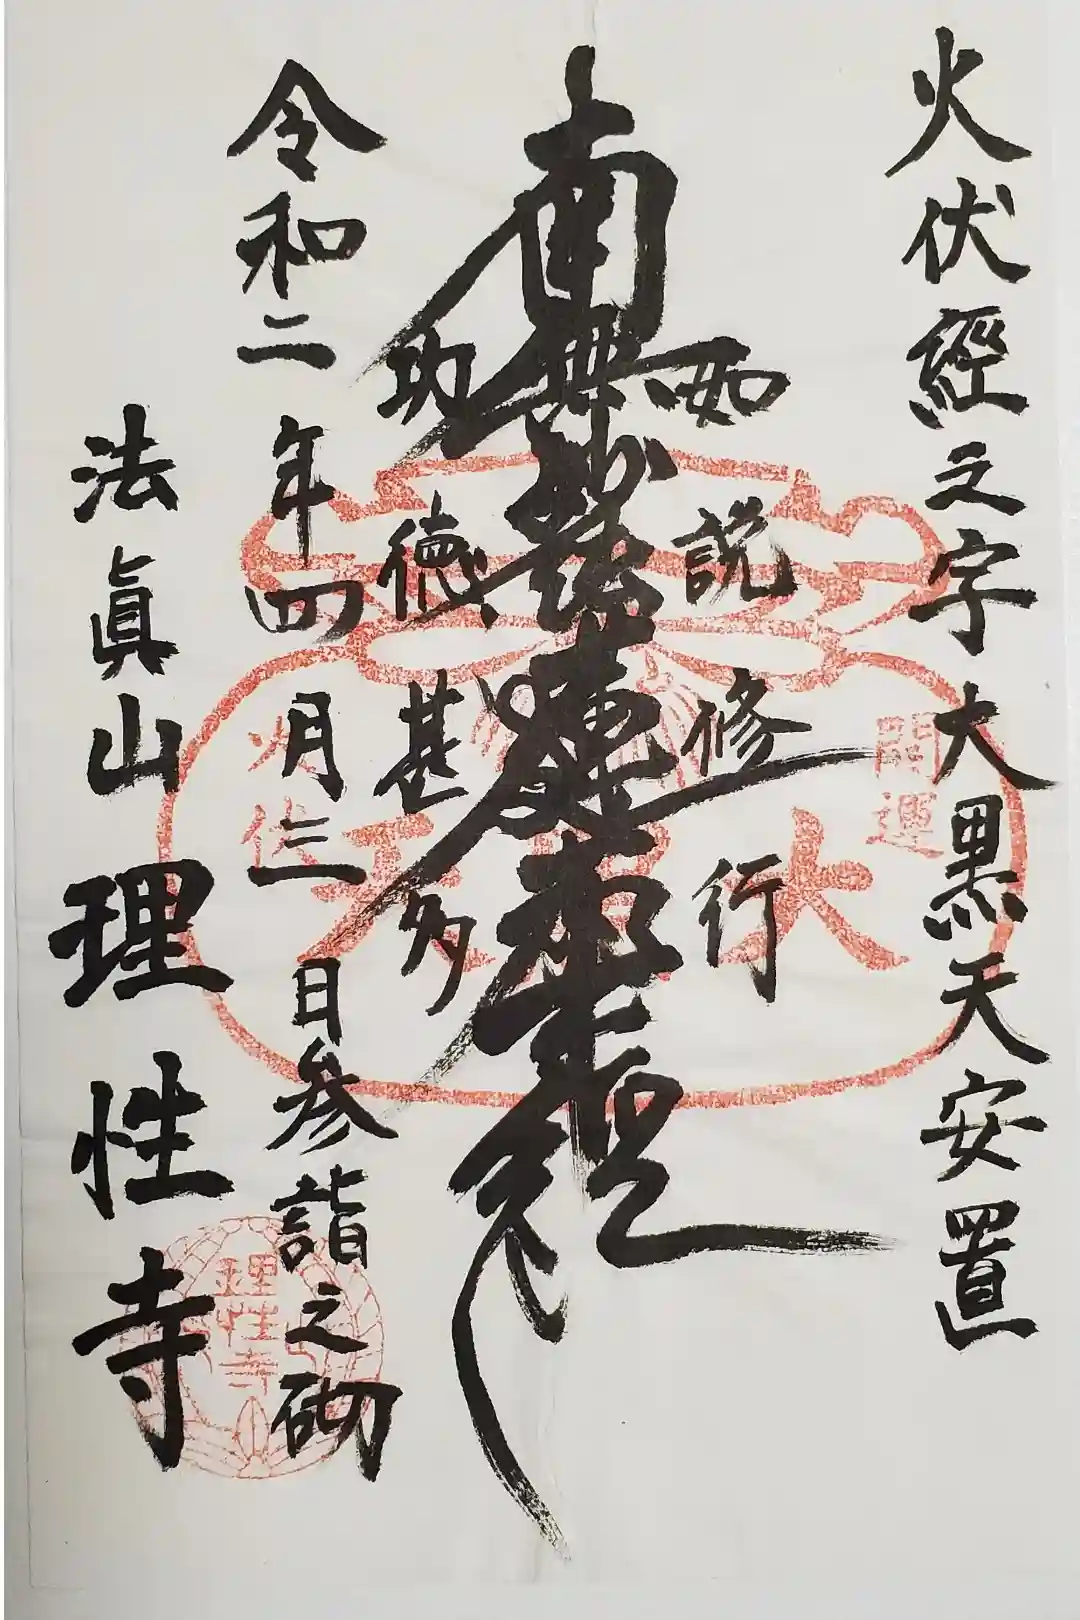 火伏經之字大黒天安置
如説修行
南無妙法蓮華経
功徳甚多
令和二年四月三日参詣之砌
法眞山理性寺
開運
大黒天
火伏
理性寺